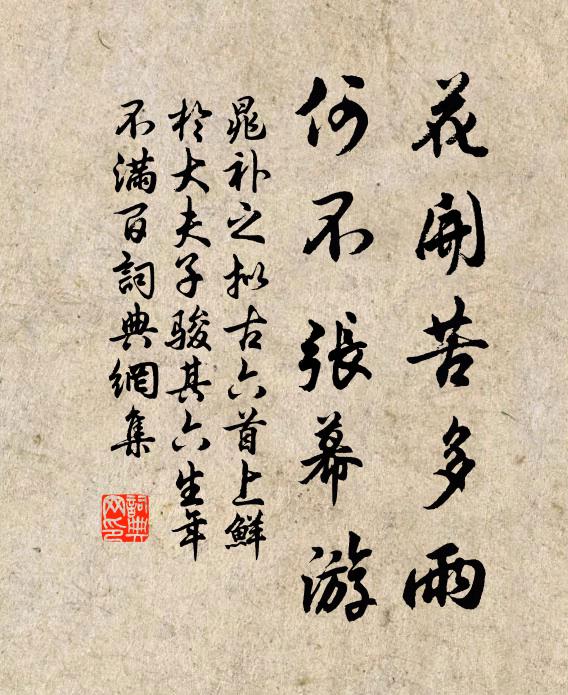 花開苦多雨
何不張幕游
晁补之拟古六首上鮮
於大夫子駿其六生年
不滿百詞典網集
詞典网印